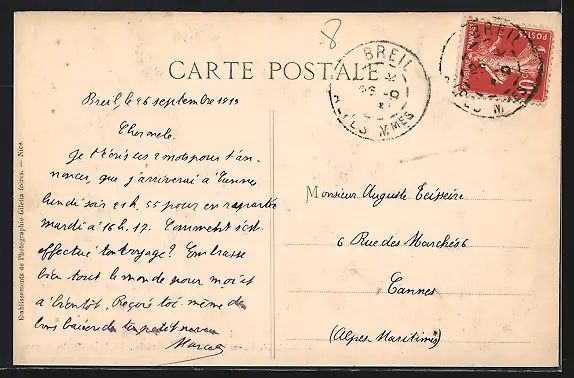 8
CARTE POSTALE
BREIL
ALPES MMES
BREIL
POSTES
10
ALPES M
Breil, le 26 septembre 1919
Cher oncle.
Je t'écris ces 2 mots pour t'an-
noncer, que j'arriverai à Cannes
lundi soir 21 h. 55 pour en repartir
mardi à 16 h. 17. Comment s'est
effectué ton voyage? Embrasse
bien tout le monde pour moi et
à bientôt. Reçois toi-même de
bons baisers de ton petit neveu
Marcel
Monsieur Auguste Teisseire
6 Rue des Marchés 6
Cannes
(Alpes Maritimes)
Etablissements de Photographie Giletta frères. — Nice.